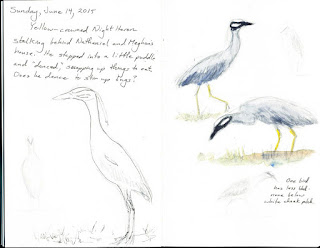 Sunday, June 14, 2015
Yellow-crowned Night Heron
stalking behind Nathaniel and Meghan's
house. He stepped into a little puddle
and "danced," snapping up things to eat.
Does he dance to stir up bugs?
One bird
has less black
below
white cheek patch.